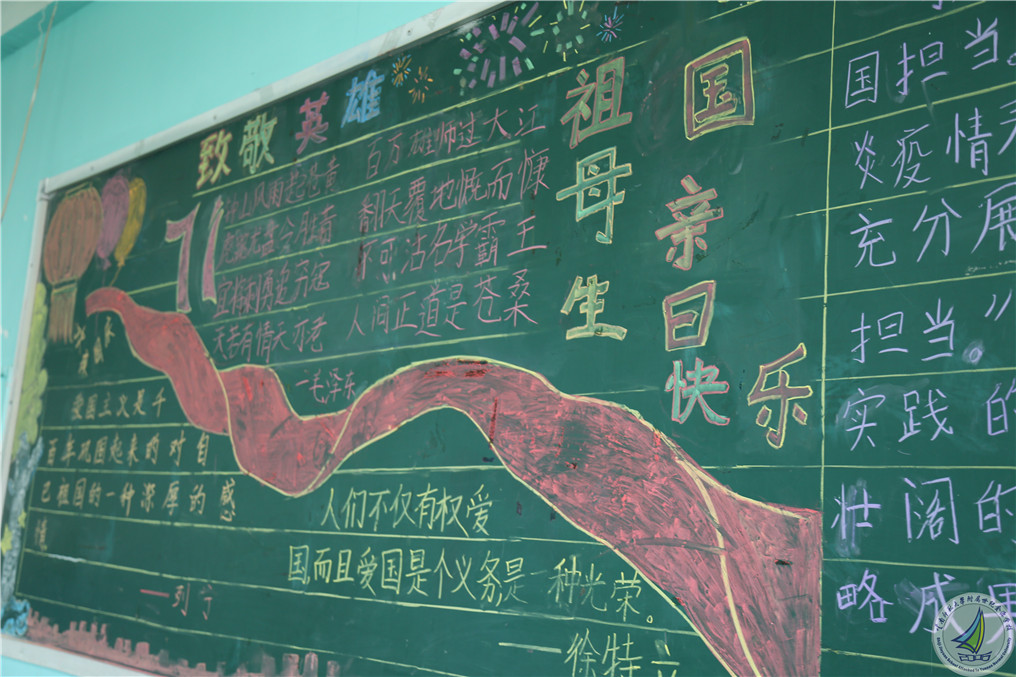 致敬英雄
71
钟山风雨起苍黄 百万雄师过大江
虎踞龙盘今胜昔 翻天覆地慨而慷
宜将剩勇追穷寇 不可沽名学霸王
天若有情天亦老 人间正道是苍桑
—毛泽东
祖国
母亲
生日
快乐
爱国主义是千
百年巩固起来的对自
己祖国的一种深厚的感
情
——列宁
人们不仅有权爱
国,而且爱国是个义务,是一种光荣。
——徐特立
国担当。
炎疫情
充分展
担当。”
实践的
壮阔的
略成